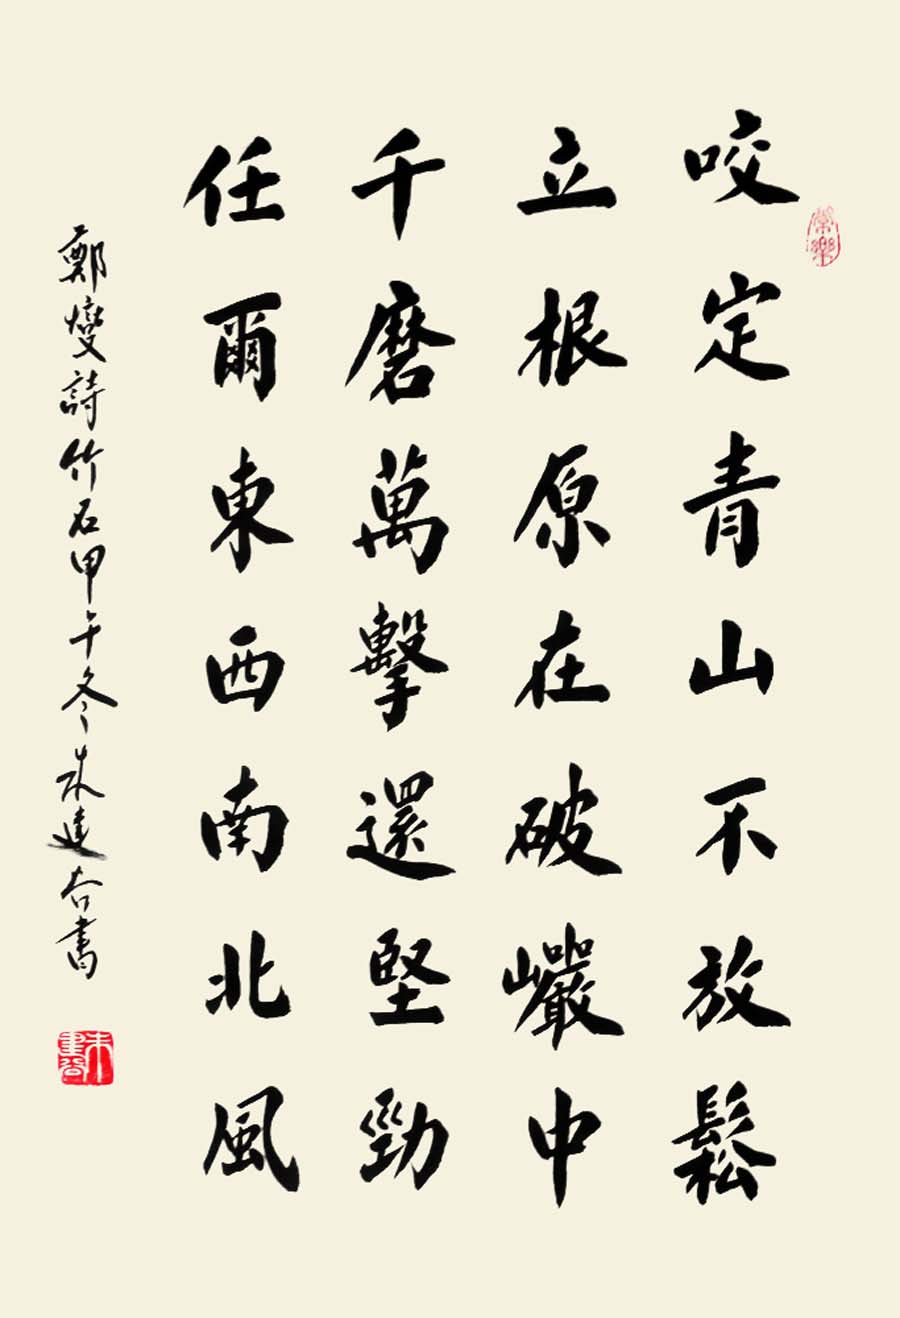 咬定青山不放鬆
立根原在破巖中
千磨萬擊還堅勁
任爾東西南北風
鄭燮詩竹石甲午冬朱建合書